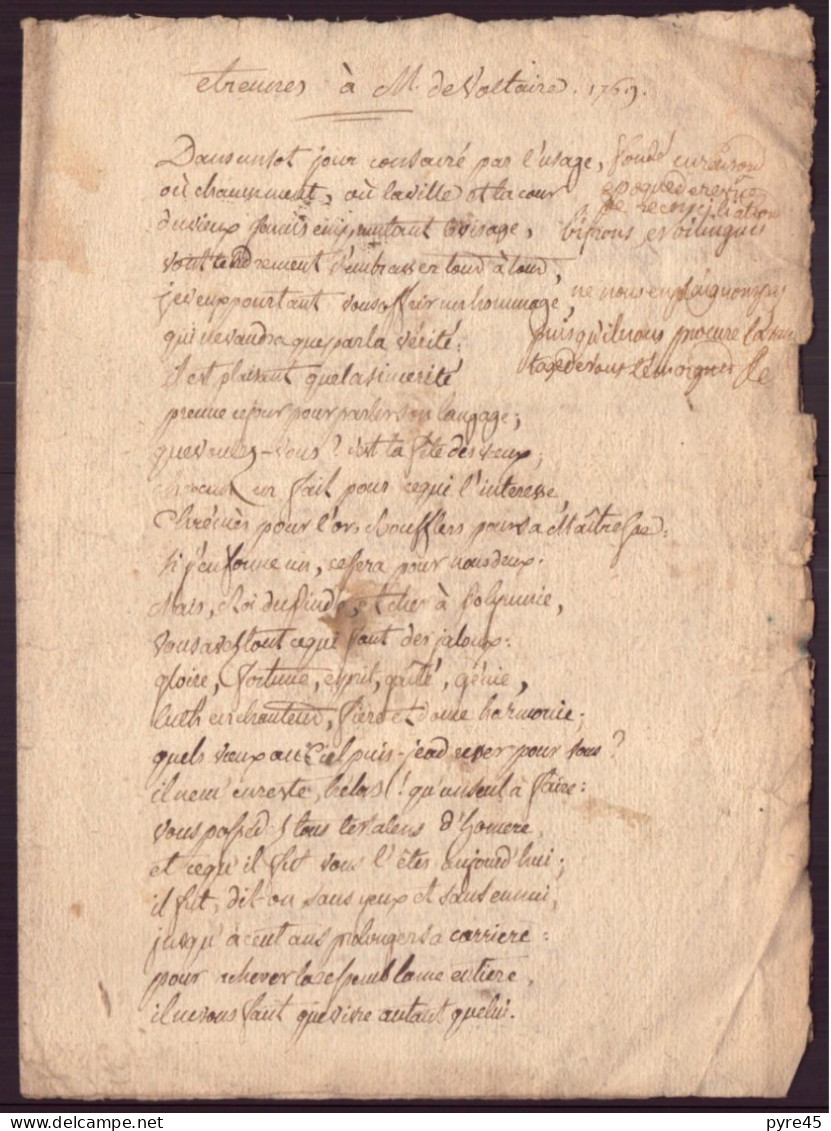 etrennes à M. de Voltaire. 1769.
Dans un sot jour consacré par l'usage,
où chaussement, où la ville et la cour
du vieux Janus empruntant le visage,
vont tendrement s'embrasser tour à tour,
je veux pourtant vous offrir un hommage,
qui ne vaudra que par la vérité:
il est plaisant que la sincérité
prenne ce jour pour parler son langage;
que voulez-vous? c'est la fête des vœux;
chacun en fait pour ce qui l'interesse,
Chrémès pour l'or, Boufflers pour sa Maîtresse:
si j'en forme un, ce sera pour nous deux.
Mais, Roi du Pinde, et cher à Polymnie,
vous avez tout ce qui fait des jaloux:
gloire, fortune, esprit, gaîté, génie,
luth enchanteur, fiere et douce harmonie;
quels vœux au Ciel puis-je adresser pour vous?
il n'en reste, hélas! qu'un seul à faire:
vous possedez tous les talens d'Homere,
et ce qu'il fut vous l'êtes aujourd'hui;
il fut, dit-on sans yeux et sans ennui,
jusqu'à cent ans prolonger sa carriere:
pour achever la ressemblance entiere,
il ne vous faut que vivre autant que lui.
fondé en raison
epoque de
de reconciliation
ne nous en plaignons pas
puisqu'il nous procure
de vous témoigner